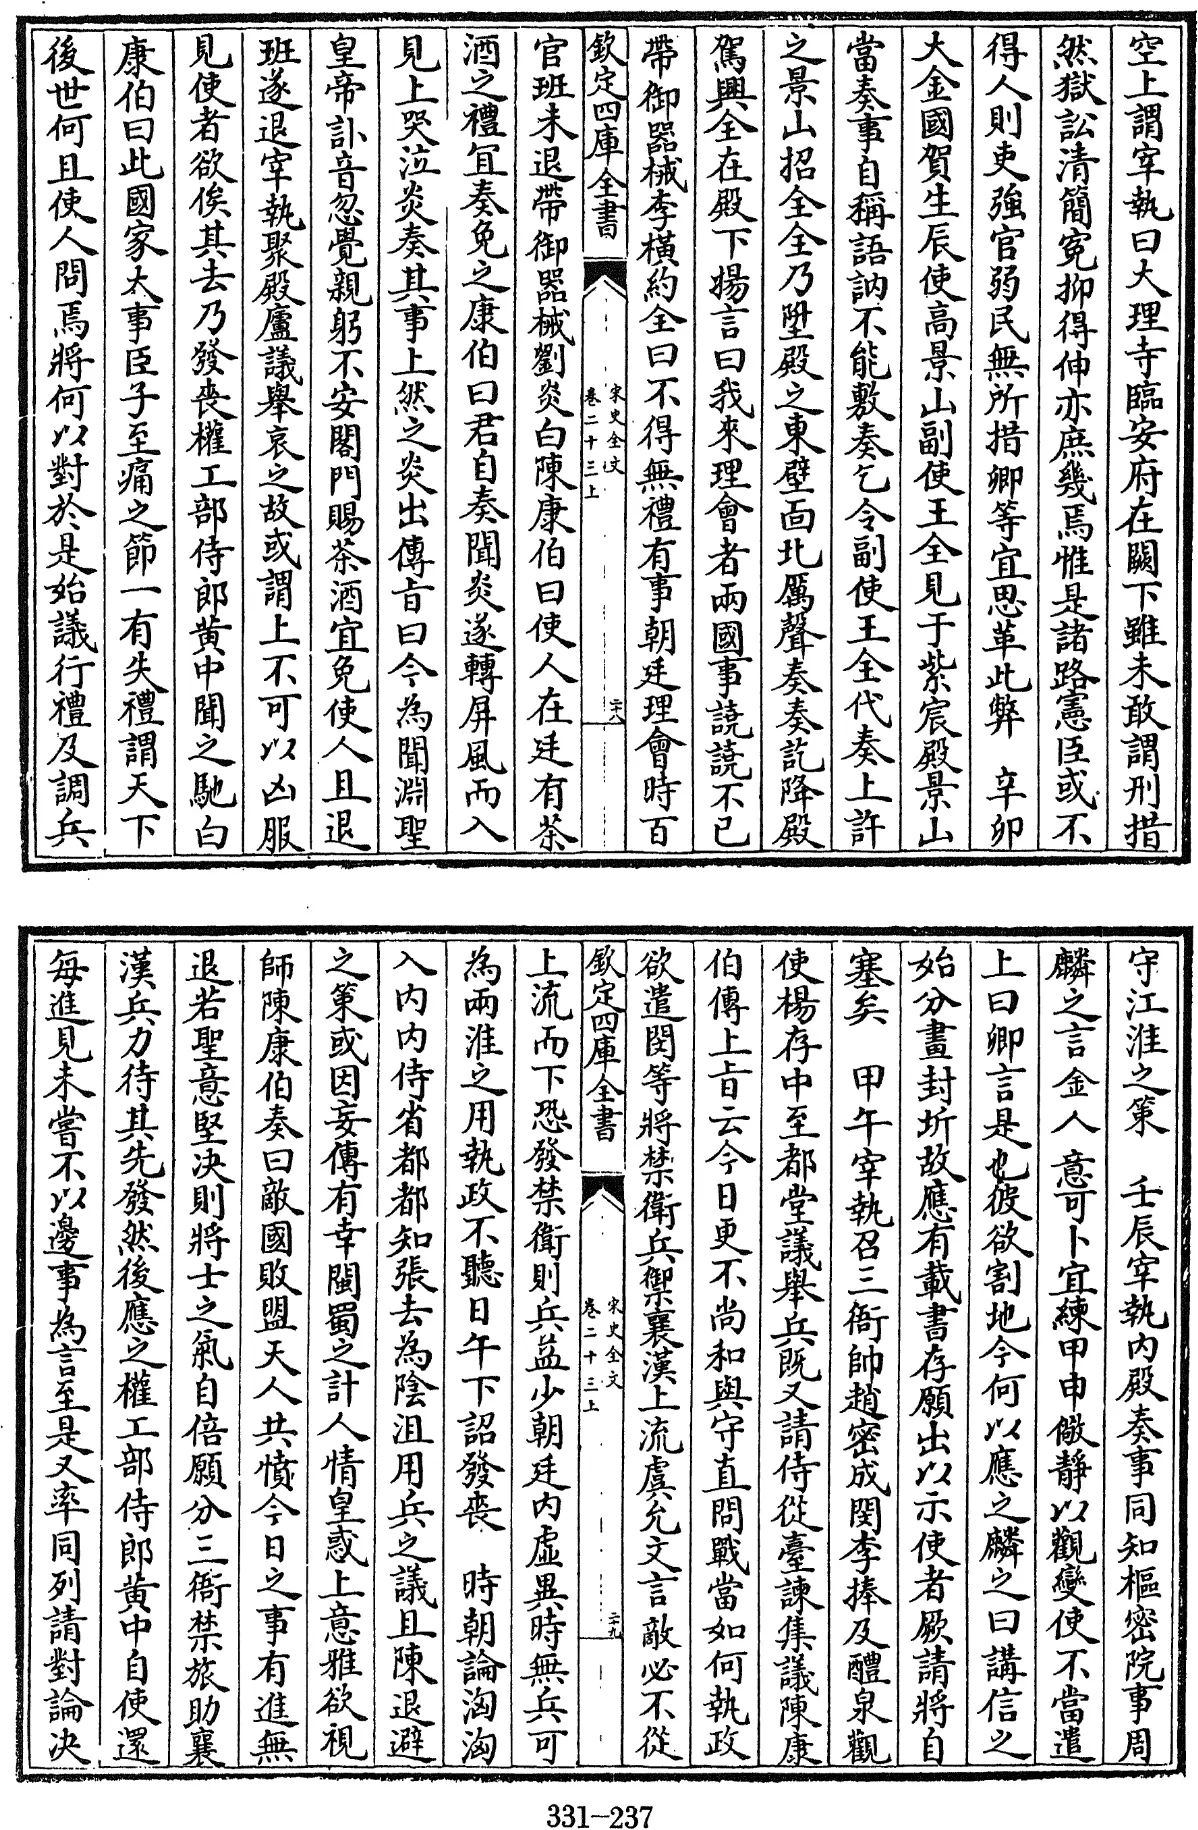 空上謂宰執曰大理寺臨安府在闕下雖未敢謂刑措
然獄訟清簡寃抑得伸亦庶幾焉惟是諸路憲臣或不
得人則吏強官弱民無所措卿等宜思革此弊　辛卯
大金國賀生辰使高景山副使王全見于紫宸殿景山
當奏事自稱語訥不能敷奏乞令副使王全代奏上許
之景山招全全乃陞殿之東壁面北厲聲奏奏訖降殿
駕興全在殿下揚言曰我來理會者兩國事譊譊不已
帶御器械李橫約全曰不得無禮有事朝廷理會時百
欽定四庫全書
宋史全文
卷二十三上
二十八
官班未退帶御器械劉炎白陳康伯曰使人在廷有茶
酒之禮宜奏免之康伯曰君自奏聞炎遂轉屏風而入
見上哭泣炎奏其事上然之炎出傳旨曰今為聞淵聖
皇帝訃音忽覺親躬不安閤門賜茶酒宜免使人且退
班遂退宰執聚殿廬議舉哀之故或謂上不可以凶服
見使者欲俟其去乃發喪權工部侍郎黄中聞之馳白
康伯曰此國家大事臣子至痛之節一有失禮謂天下
後世何且使人問焉將何以對於是始議行禮及調兵
守江淮之策　壬辰宰執内殿奏事同知樞密院事周
麟之言金人意可卜宜練甲申儆靜以觀變使不當遣
上曰卿言是也彼欲割地今何以應之麟之曰講信之
始分畫封圻故應有載書存願出以示使者厥請將自
塞矣　甲午宰執召三衙帥趙密成閔李捧及醴泉觀
使楊存中至都堂議舉兵既又請侍從臺諫集議陳康
伯傳上旨云今日更不尚和與守直問戰當如何執政
欲遣閔等將禁衛兵禦襄漢上流虞允文言敵必不從
欽定四庫全書
宋史全文
卷二十三上
二十九
上流而下恐發禁衛則兵益少朝廷内虛異時無兵可
為兩淮之用執政不聽日午下詔發喪　時朝論洶洶
入内内侍省都都知張去為陰沮用兵之議且陳退避
之策或因妄傳有幸閩蜀之計人情皇惑上意雅欲視
師陳康伯奏曰敵國敗盟天人共憤今日之事有進無
退若聖意堅决則將士之氣自倍願分三衙禁旅助襄
漢兵力待其先發然後應之權工部侍郎黄中自使還
每進見未嘗不以邊事為言至是又率同列請對論决
331-237